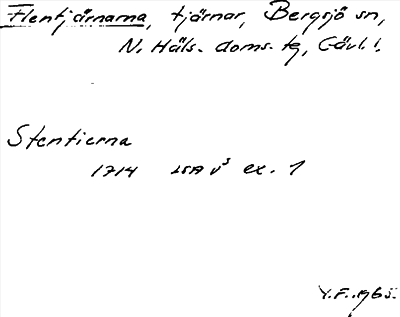 Flentjärnarna, tjärnar, Bergsjö sn,
N. Häls. doms. tg, Gävl. l.
Stentierna
1714 LSA v³ ex. 1
Y.F. 1965.